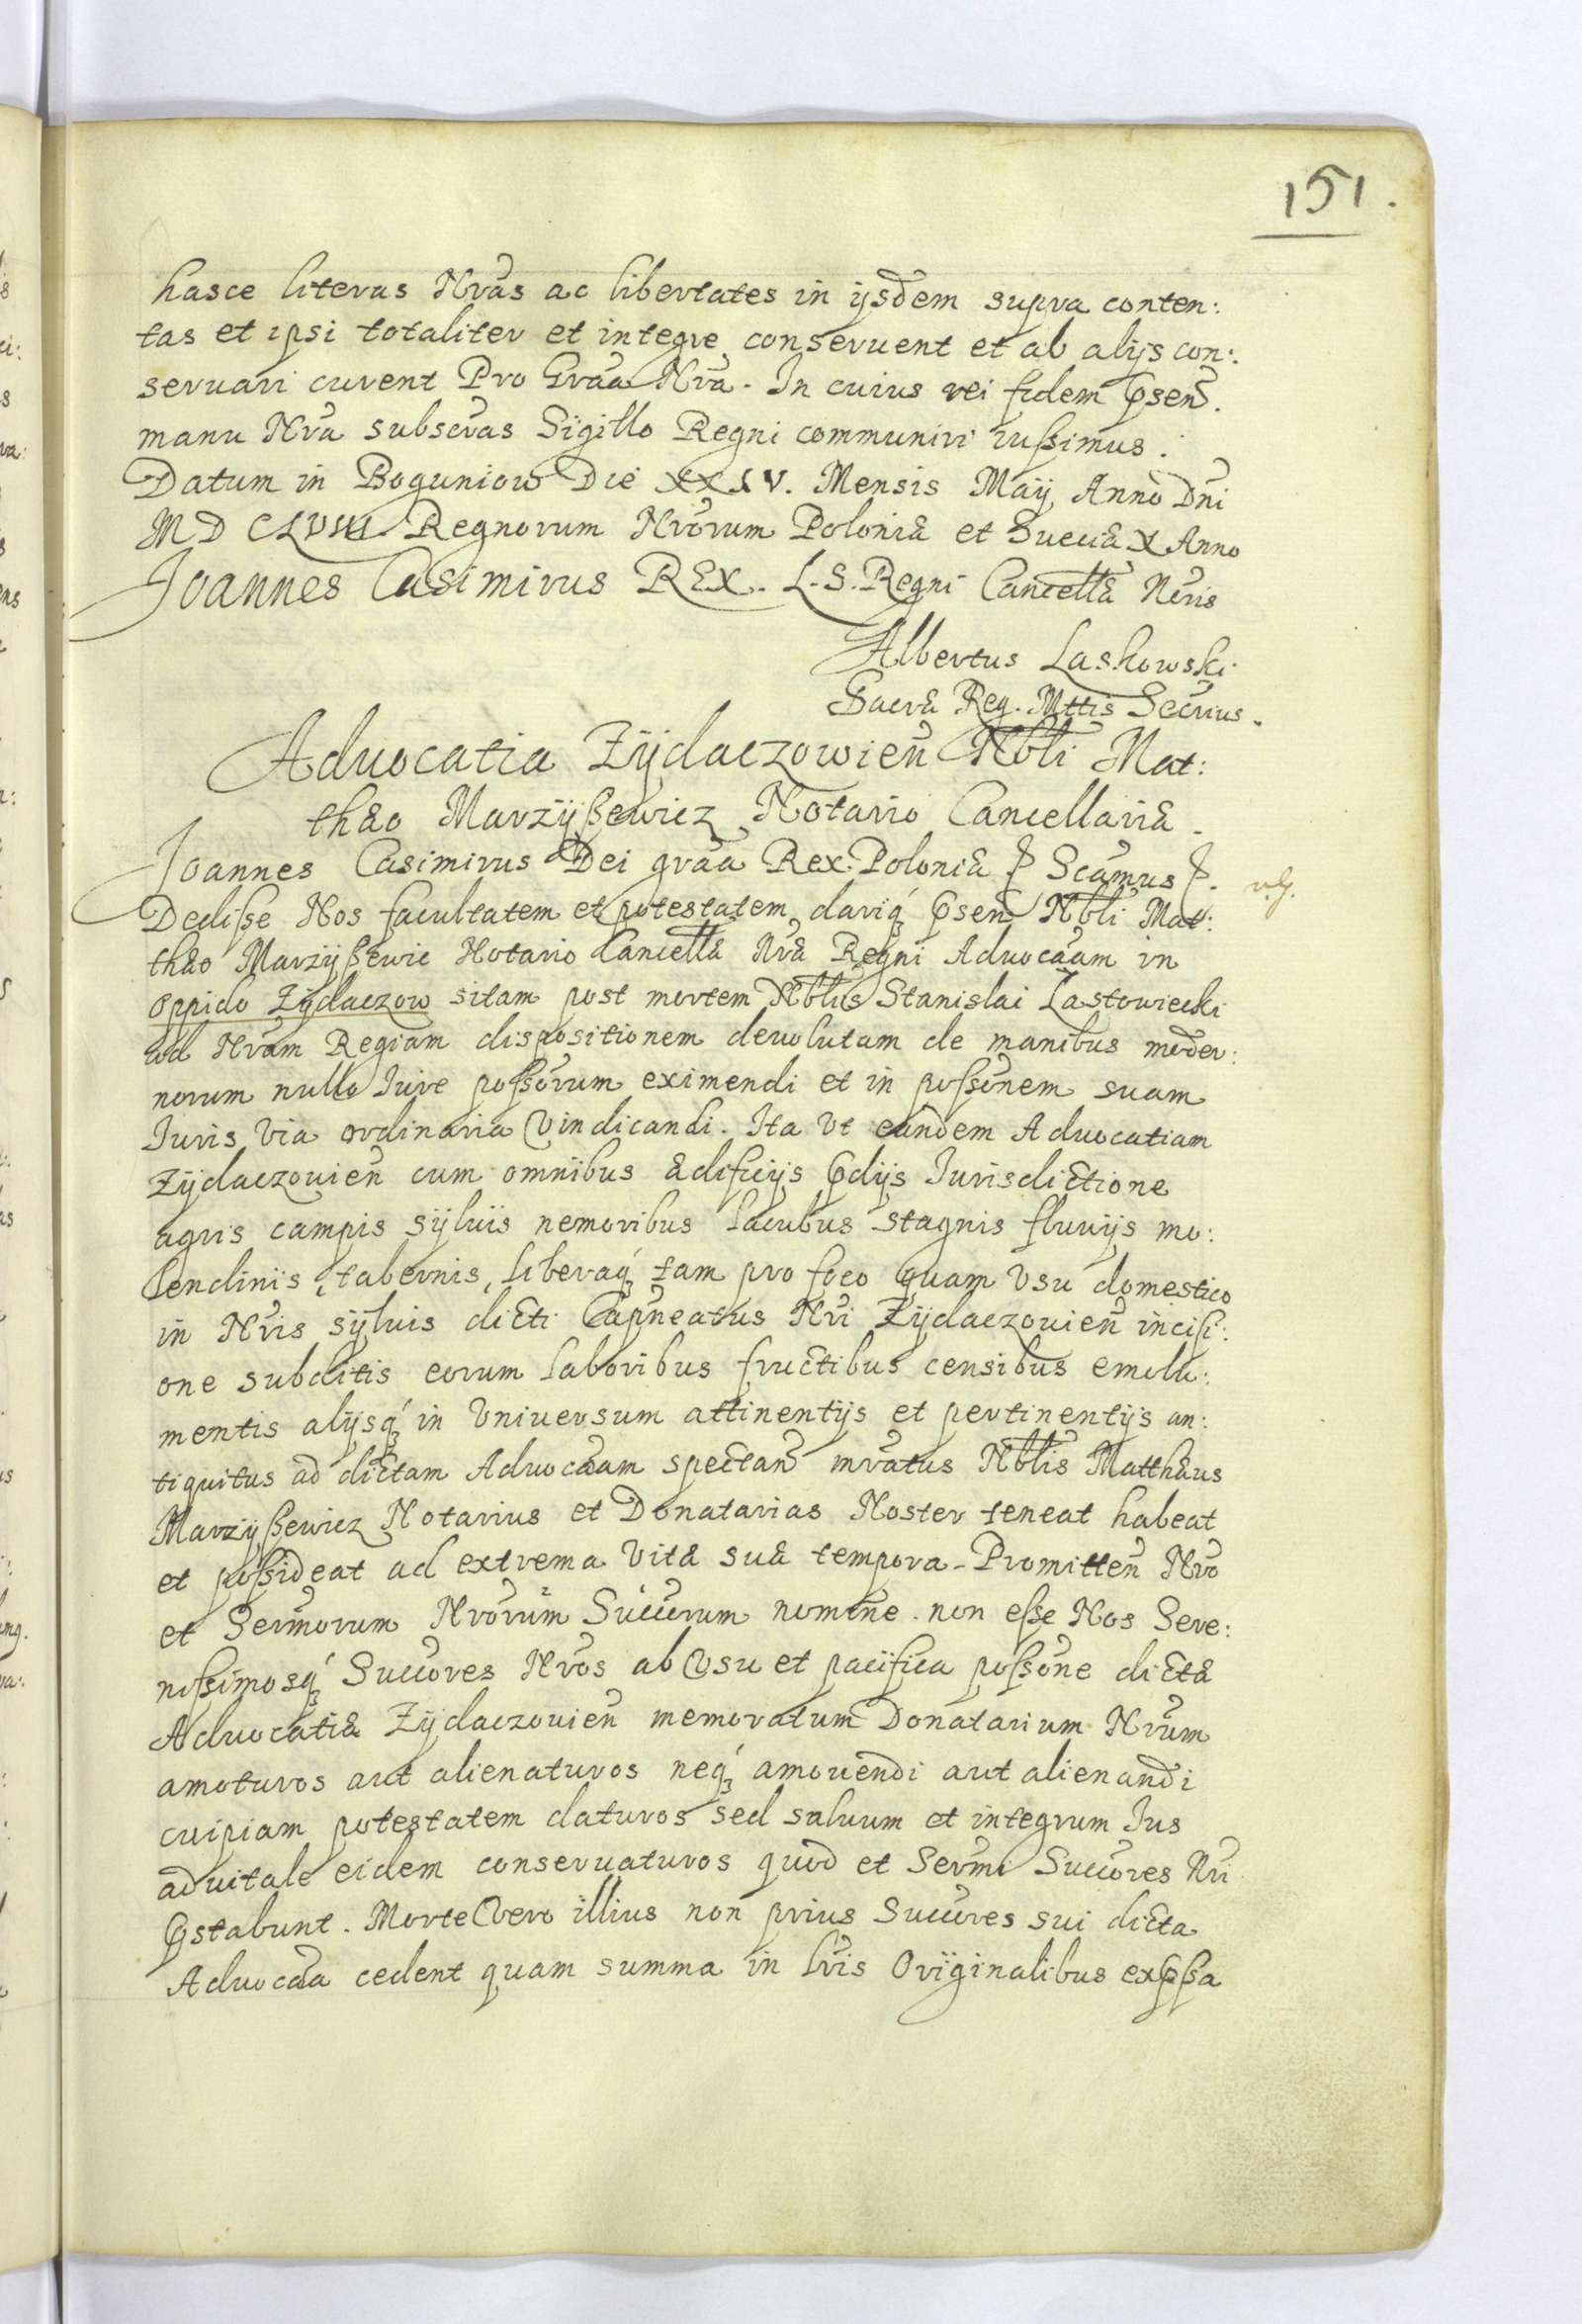 151.
hasce literas Nras ac libertates in ijsdem supra conten:
tas et ipsi totaliter et integre conseruent et ab alijs con:
seruari curent Pro Graa Nra. In cuius rei fidem Psen.
manu Nra subscras Sigillo Regni communiri iussimus.
Datum in Boguniow Die XXIV. Mensis Maij Anno Dni
MDCLVIII Regnorum Nrorum Poloniæ et Sueciæ X Anno
Joannes Casimirus REX. L.S. Regni Cancellæ Nris
Albertus Laskowski
Sacræ Reg. Mttis Secrius.
Aduocatia Zÿdaczowien Nbli Mat:
thæo Marzÿßewicz Notario Cancellariæ
Joannes Casimirus Dei graa Rex Poloniæ Scamus
Dediße Nos facultatem et potestatem, dariq́ Psen Nbli Mat:
thæo Marzÿßewic Notario Cancellæ Nræ Regni Aduocaam in
oppido Zÿdaczow sitam post mortem Nblis Stanislai Lastowiecki
ad Nram Regiam dispositionem deuolutam de manibus moder:
norum nullo Iure poßorum eximendi et in poßonem suam
Iuris Via ordinaria Vindicandi. Ita Vt eandem Aduocatiam
Zÿdaczouien cum omnibus ædificijs Pdijs Iurisdictione
agris campis sÿluis nemoribus lacubus stagnis fluuijs mo:
lendinis, tabernis, liberaq́ tam pro foco quam Vsu domestico
in Nris sÿluis dicti Capneatus Nri Zÿdaczouien incisi:
one subditis eorum laboribus fructibus censibus emolu:
mentis alijsq́ in Vniuersum attinentijs et pertinentijs an:
tiquitus ad dictam Aduocaam spectan mratus Nblis Matthæus
Marzÿßewicz Notarius et Donatarias Noster teneat habeat
et poßideat ad extrema Vitæ suæ tempora. Promitten Nro
et Sermorum Nrorum Succrum nomine. non eße Nos Sere:
nißimosq́ Succores Nros ab Vsu et pacifica poßone dictæ
Aduocatiæ Zÿdaczouien memoratum Donatarium Nrum
amoturos aut alienaturos neq́ amouendi aut alienandi
cuipiam potestatem daturos sed saluum et integrum Ius
aduitale eidem conseruaturos quod et Sermi Succores Nri
Pstabunt. Morte Vero illius non prius Succores sui dicta
Aduocaa cedent quam summa in lris Originalibus expßa